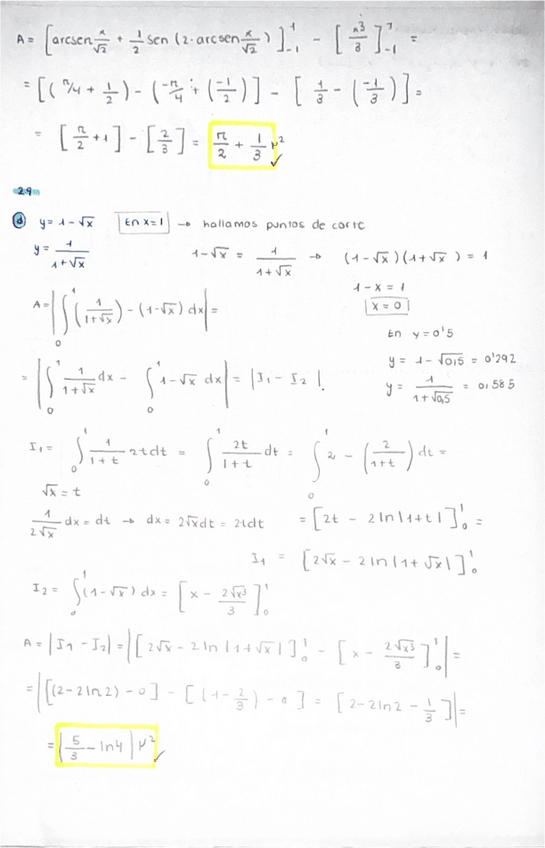 A = [arcsen x/√2 + 1/2 sen (2·arcsen x/√2)]₋₁¹ - [x³/3]₋₁¹ =
= [(π/4 + 1/2) - (-π/4 + (-1/2))] - [1/3 - (-1/3)] =
= [π/2 + 1] - [2/3] = π/2 + 1/3 μ² ✓
29
d) y = 1 - √x  En x=1 → hallamos puntos de corte
y = 1/(1+√x)  1-√x = 1/(1+√x) → (1-√x)(1+√x) = 1
1 - x = 1
x = 0
A = |∫₀¹ (1/(1+√x)) - (1-√x) dx| =
En y=0'5
y = 1 - √0,5 = 0'292
y = 1/(1+√0,5) = 0,585
= |∫₀¹ 1/(1+√x) dx - ∫₀¹ 1-√x dx| = |I₁ - I₂|.
I₁ = ∫₀¹ 1/(1+t) 2t dt = ∫₀¹ 2t/(1+t) dt = ∫₀¹ 2 - (2/(1+t)) dt =
√x = t
1/(2√x) dx = dt → dx = 2√x dt = 2t dt  = [2t - 2ln|1+t|]₀¹ =
I₁ = [2√x - 2ln|1+√x|]₀¹
I₂ = ∫₀¹ (1-√x) dx = [x - 2√x³/3]₀¹
A = |I₁ - I₂| = |[2√x - 2ln|1+√x|]₀¹ - [x - 2√x³/3]₀¹| =
= |[(2-2ln2) - 0] - [(1 - 2/3) - 0] = [2 - 2ln2 - 1/3]| =
= |5/3 - ln4| μ² ✓